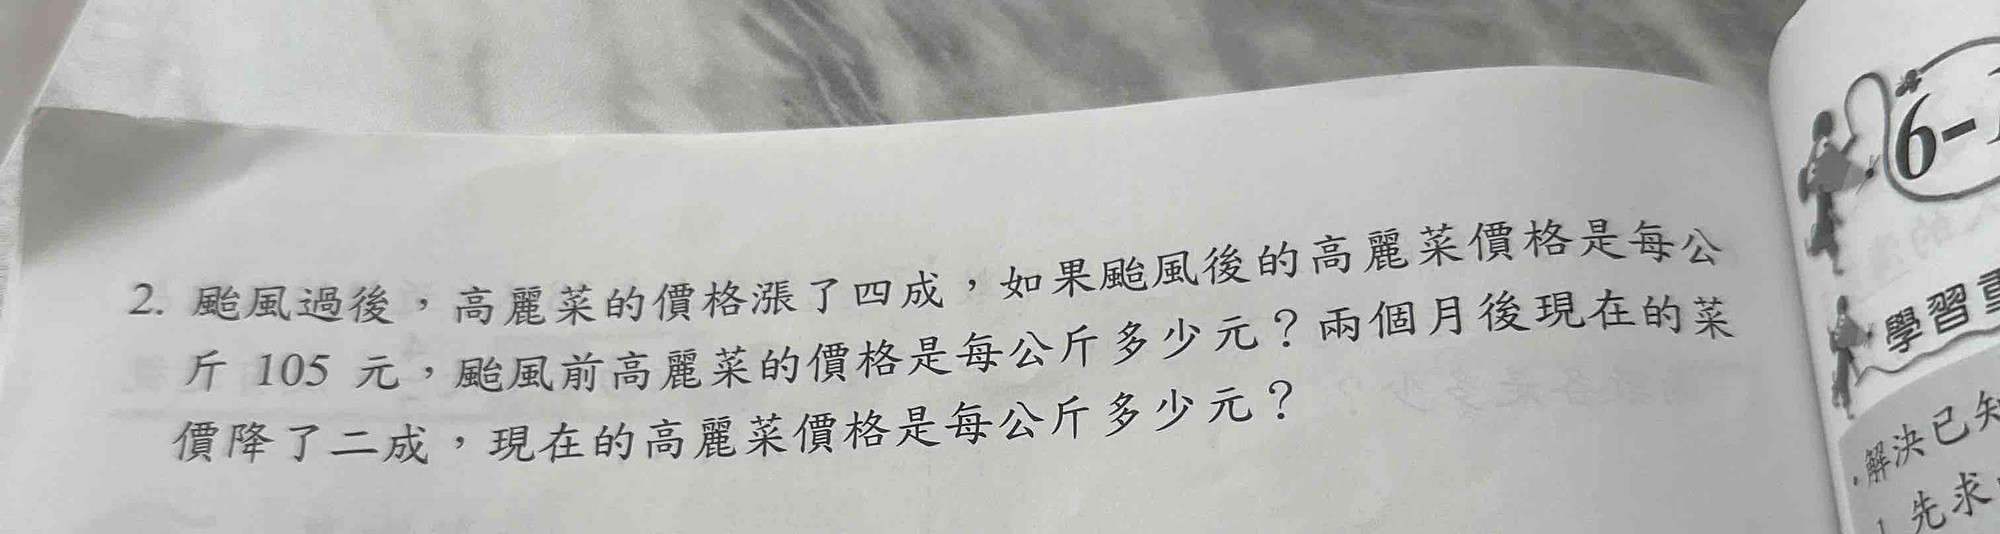 2. 颱風過後，高麗菜的價格漲了四成，如果颱風後的高麗菜價格是每公
斤 105 元，颱風前高麗菜的價格是每公斤多少元？兩個月後現在的菜
價降了二成，現在的高麗菜價格是每公斤多少元？
6-1
學習重
·解決已知
1 先求